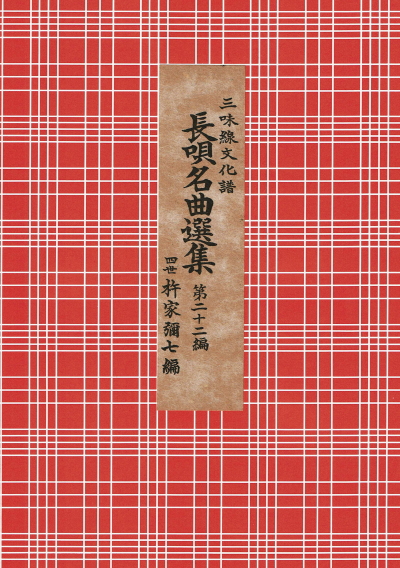 三味線文化譜
長唄名曲選集
第二十二編
四世 杵家彌七編